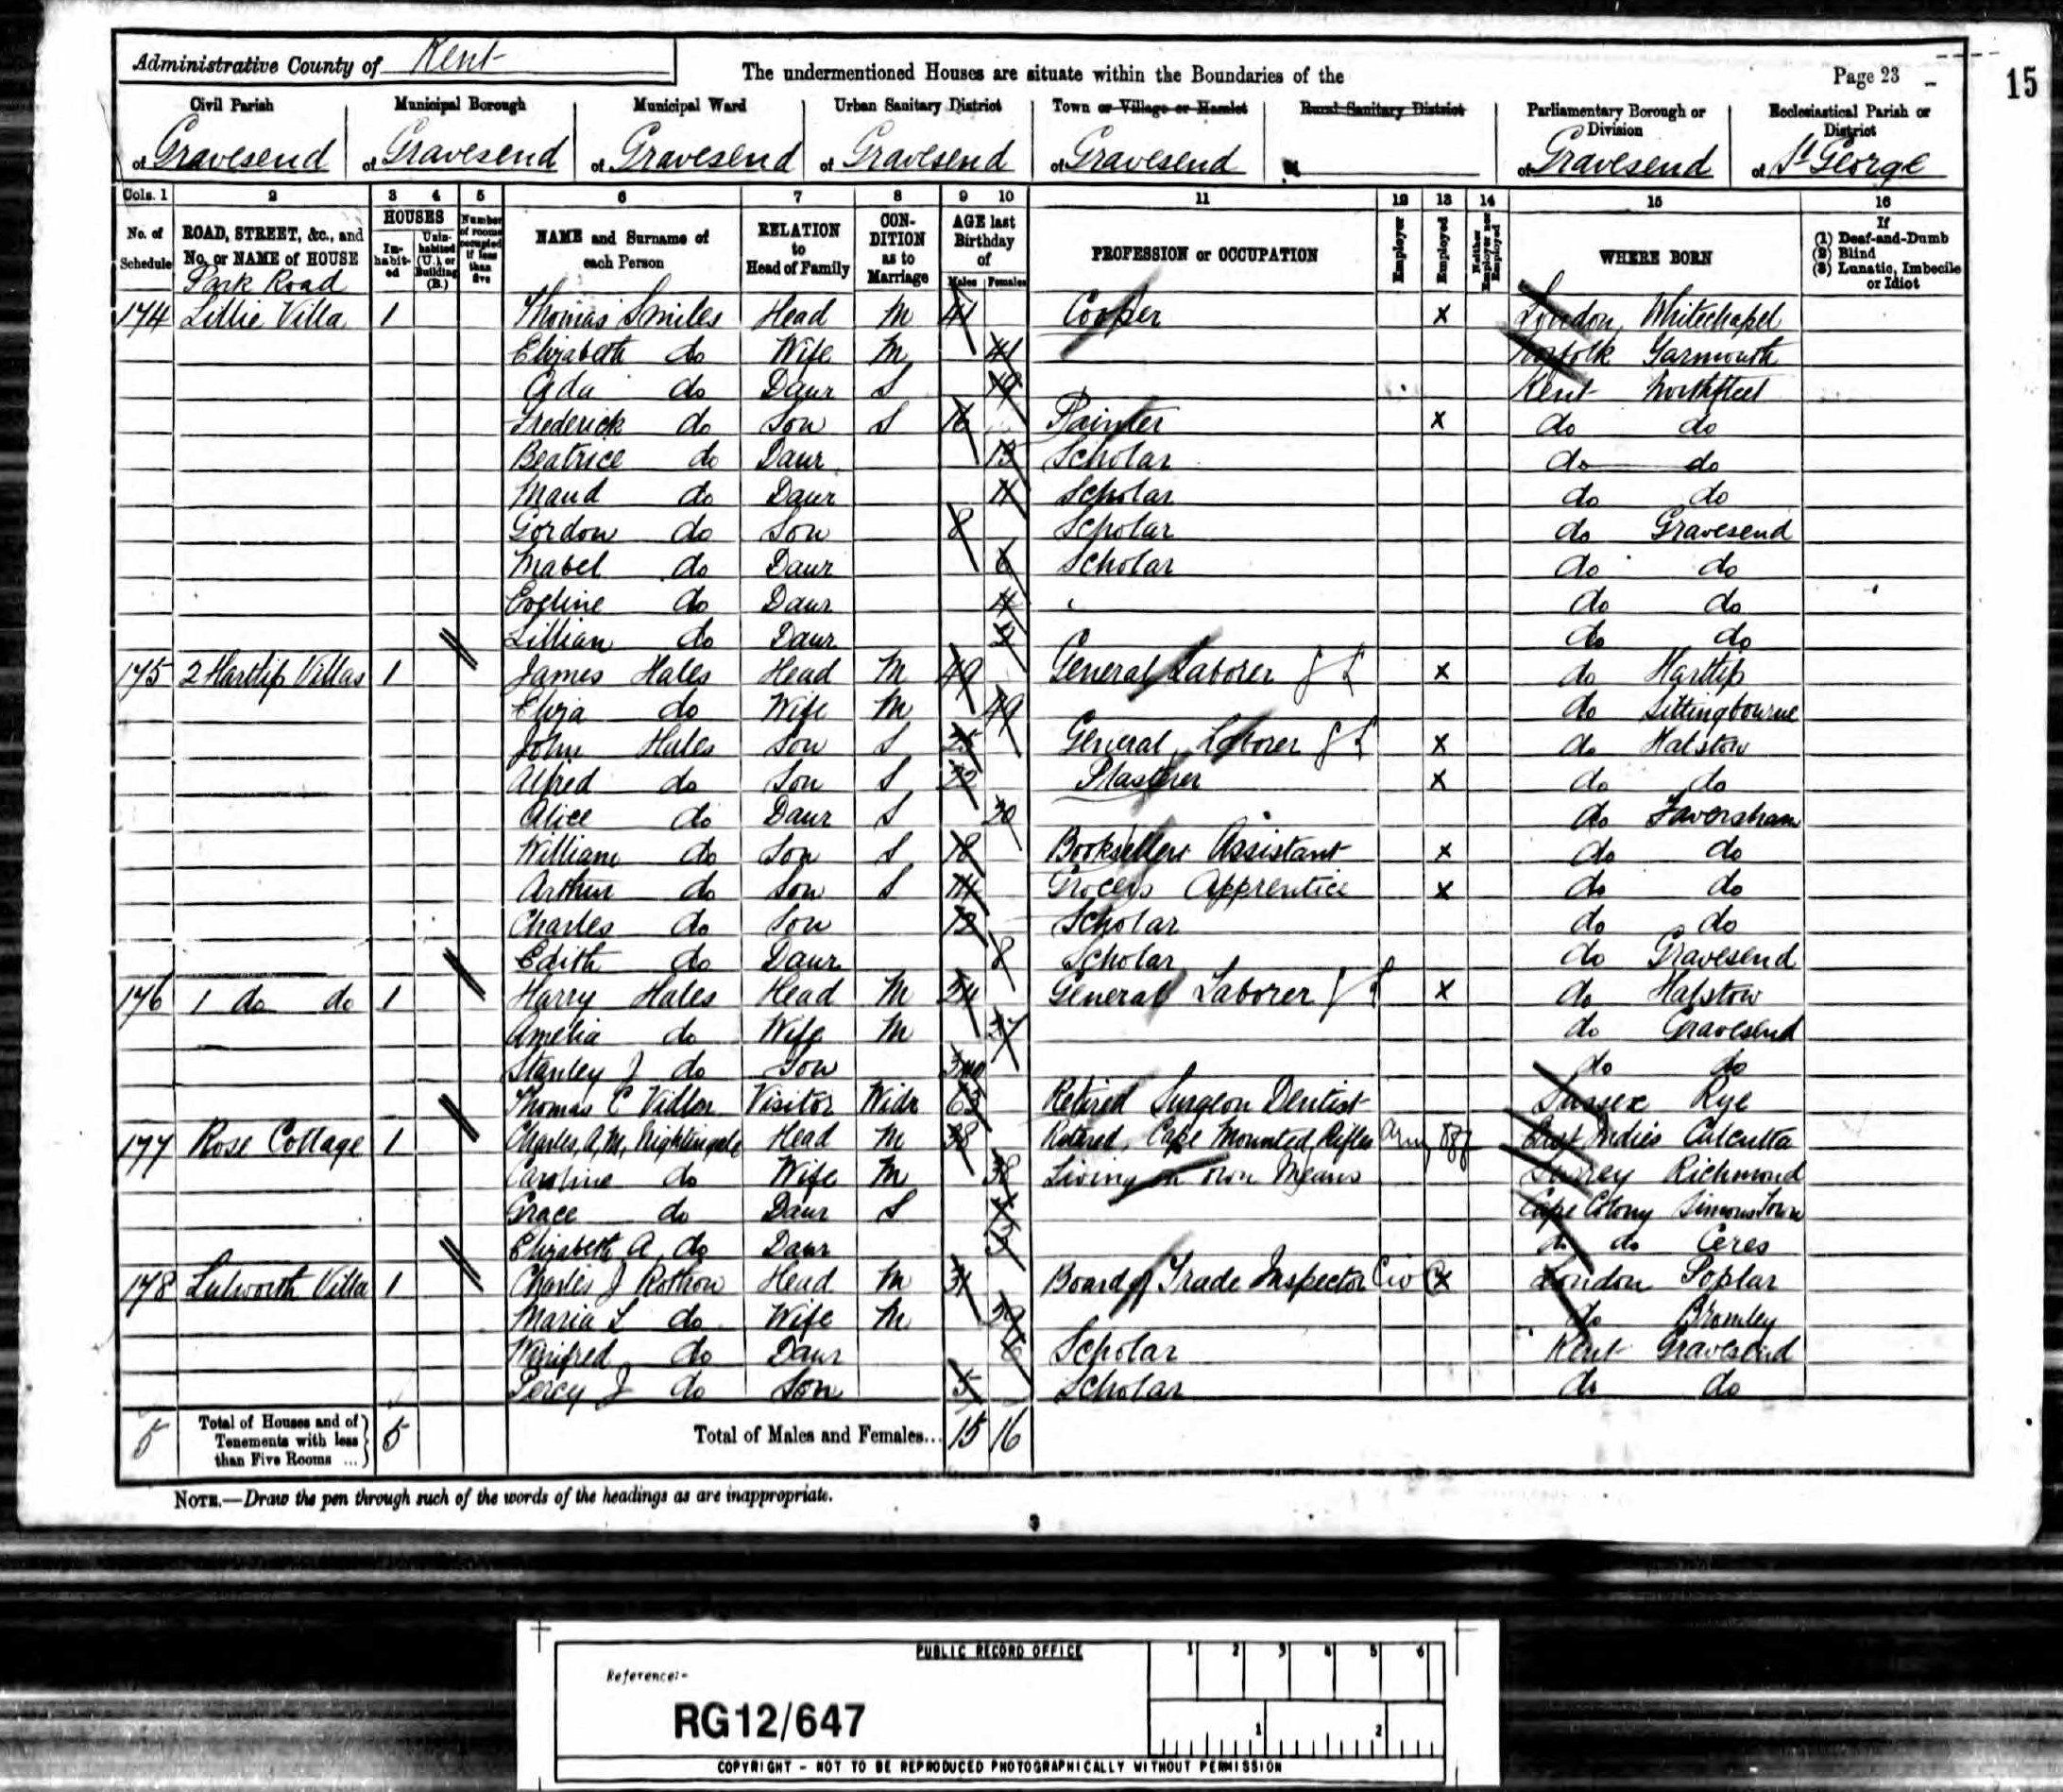 Administrative County of Kent
The undermentioned Houses are situate within the Boundaries of the
Page 23
15
Civil Parish
of Gravesend
Municipal Borough
of Gravesend
Municipal Ward
of Gravesend
Urban Sanitary District
of Gravesend
Town or Village or Hamlet
of Gravesend
Rural Sanitary District
Parliamentary Borough or Division
of Gravesend
Ecclesiastical Parish or District
of St George
Cols. 1 2 3 4 5 6 7 8 9 10 11 12 13 14 15 16
No. of Schedule
ROAD, STREET, &c., and No. or NAME of HOUSE
HOUSES
Inhabited
Uninhabited (U.), or Building (B.)
Number of rooms occupied if less than five
NAME and Surname of each Person
RELATION to Head of Family
CONDITION as to Marriage
AGE last Birthday of
Males Females
PROFESSION or OCCUPATION
Employer
Employed
Neither Employer nor Employed
WHERE BORN
If
(1) Deaf-and-Dumb
(2) Blind
(3) Lunatic, Imbecile or Idiot
Park Road
174 Lillie Villa 1 Thomas Smiles Head M 41 Cooper x London Whitechapel
Elizabeth do Wife M 41 Norfolk Yarmouth
Ada do Daur S 19 Kent Northfleet
Frederick do Son S 16 Painter x do do
Beatrice do Daur 13 Scholar do do
Maud do Daur 11 Scholar do do
Gordon do Son 8 Scholar do Gravesend
Mabel do Daur 6 Scholar do do
Eveline do Daur 4 do do
Lillian do Daur 2 do do
175 2 Hartlip Villas 1 James Hales Head M 49 General Laborer x do Hartlip
Eliza do Wife M 49 do Sittingbourne
John Hales Son S 25 General Laborer x do Halstow
Alfred do Son S 22 Plasterer x do do
Alice do Daur S 20 do Faversham
William do Son S 18 Booksellers Assistant x do do
Arthur do Son S 14 Grocers Apprentice x do do
Charles do Son 12 Scholar do do
Edith do Daur 8 Scholar do Gravesend
176 1 do do 1 Harry Hales Head M 24 General Laborer x do Halstow
Amelia do Wife M 27 do Gravesend
Stanley J do Son 3mo do do
Thomas C Vidler Visitor Widr 63 Retired Surgeon Dentist Sussex Rye
177 Rose Cottage 1 Charles A. M. Nightingale Head M 38 Retired Cape Mounted Rifles Army East Indies Calcutta
Caroline do Wife M 38 Living on own Means Surrey Richmond
Grace do Daur S Cape Colony Simons Town
Elizabeth A do Daur 13 do do Ceres
178 Lulworth Villa 1 Charles J Rothon Head M 31 Board of Trade Inspector x London Poplar
Maria L do Wife M 29 do Bromley
Winifred do Daur 6 Scholar Kent Gravesend
Percy J do Son 5 Scholar do do
5 Total of Houses and of Tenements with less than Five Rooms ... 5 Total of Males and Females... 15 16
NOTE.—Draw the pen through such of the words of the headings as are inappropriate.
PUBLIC RECORD OFFICE
1 2 3 4 5 6
Reference:-
RG12/647
1 2
COPYRIGHT - NOT TO BE REPRODUCED PHOTOGRAPHICALLY WITHOUT PERMISSION